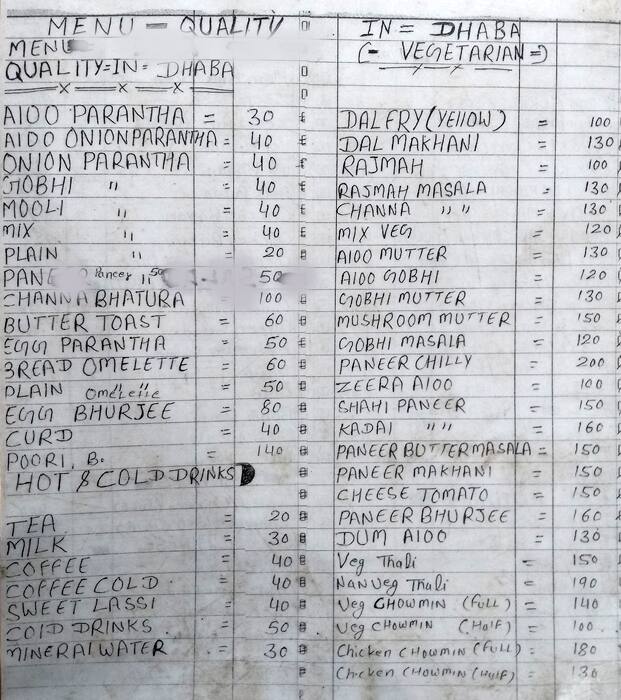 MENU - QUALITY
MENU
QUALITY=IN= DHABA
A100 PARANTHA = 30
AIDO ONION PARANTHA = 40
ONION PARANTHA = 40
GOBHI " = 40
MOOLI " = 40
MIX " = 40
PLAIN " = 20
PANE Paneer " 50 50
CHANNA BHATURA 100
BUTTER TOAST = 60
EGG PARANTHA = 50
BREAD OMELETTE = 60
PLAIN omelette = 50
EGG BHURJEE = 80
CURD = 40
POORI, B. = 140
HOT & COLD DRINKS
TEA = 20
MILK = 30
COFFEE = 40
COFFEE COLD = 40
SWEET LASSI = 40
COID DRINKS = 50
MINERAL WATER = 30
IN = DHABA
(- VEGETARIAN =)
DAL FRY (YEllOW) = 100
DAL MAKHANI = 130
RAJMAH = 100
RAJMAH MASALA = 130
CHANNA " " = 130
MIX VEG = 120
A100 MUTTER = 130
A100 GOBHI = 120
GOBHI MUTTER = 130
MUSHROOM MUTTER = 150
GOBHI MASALA = 120
PANEER CHILLY = 200
ZEERA A100 = 100
SHAHI PANEER = 150
KADAI " " = 160
PANEER BUTTER MASALA = 150
PANEER MAKHANI = 150
CHEESE TOMATO = 150
PANEER BHURJEE = 160
DUM A100 = 130
Veg Thali = 150
NAN Veg Thali = 190
Veg CHOWMIN (FUll) = 140
Veg CHOWMIN (HalF) = 100
Chicken CHOWMIN (FUll) = 180
Chicken CHOWMIN (HalF) = 130